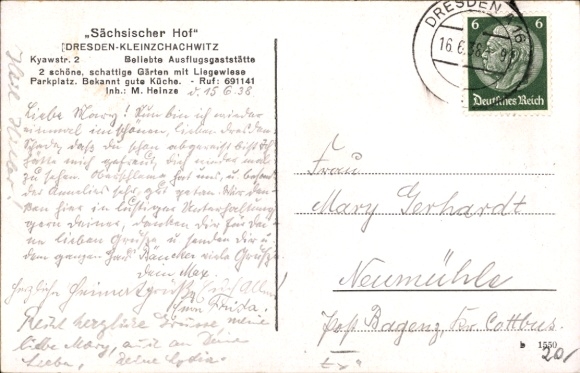 „Sächsischer Hof"
DRESDEN-KLEINZCHACHWITZ
Kyawstr. 2 Beliebte Ausflugsgaststätte
2 schöne, schattige Gärten mit Liegewiese
Parkplatz. Bekannt gute Küche. - Ruf: 691141
Inh.: M. Heinze d. 15.6.38
Liebe Mary! Nun bin ich wieder
einmal im schönen, lieben Dresden.
Schade, daß du schon abgereist bist. Ich
hätte mich gefreut, dich wieder mal
zu sehen. Oberschlema hat uns, u. besond.
der Annelies sehr gut getan. Wir den-
ken hier in lustiger Unterhaltung
gern deiner, danken dir für dei-
ne lieben Grüße u. senden dir u.
dem ganzen Haus viele Grüße
dein Max.
Herzliche Heimatgrüße Euch Allen
Frida.
Recht herzliche Grüsse, meine
liebe Mary, auch an Deine
Lieben, Deine Lydia.
DRESDEN A 16
16.6.38
6 6
Deutsches Reich
Frau
Mary Gerhardt
Neumühle
Post Bagenz, Kr. Cottbus.
b 1550
20/